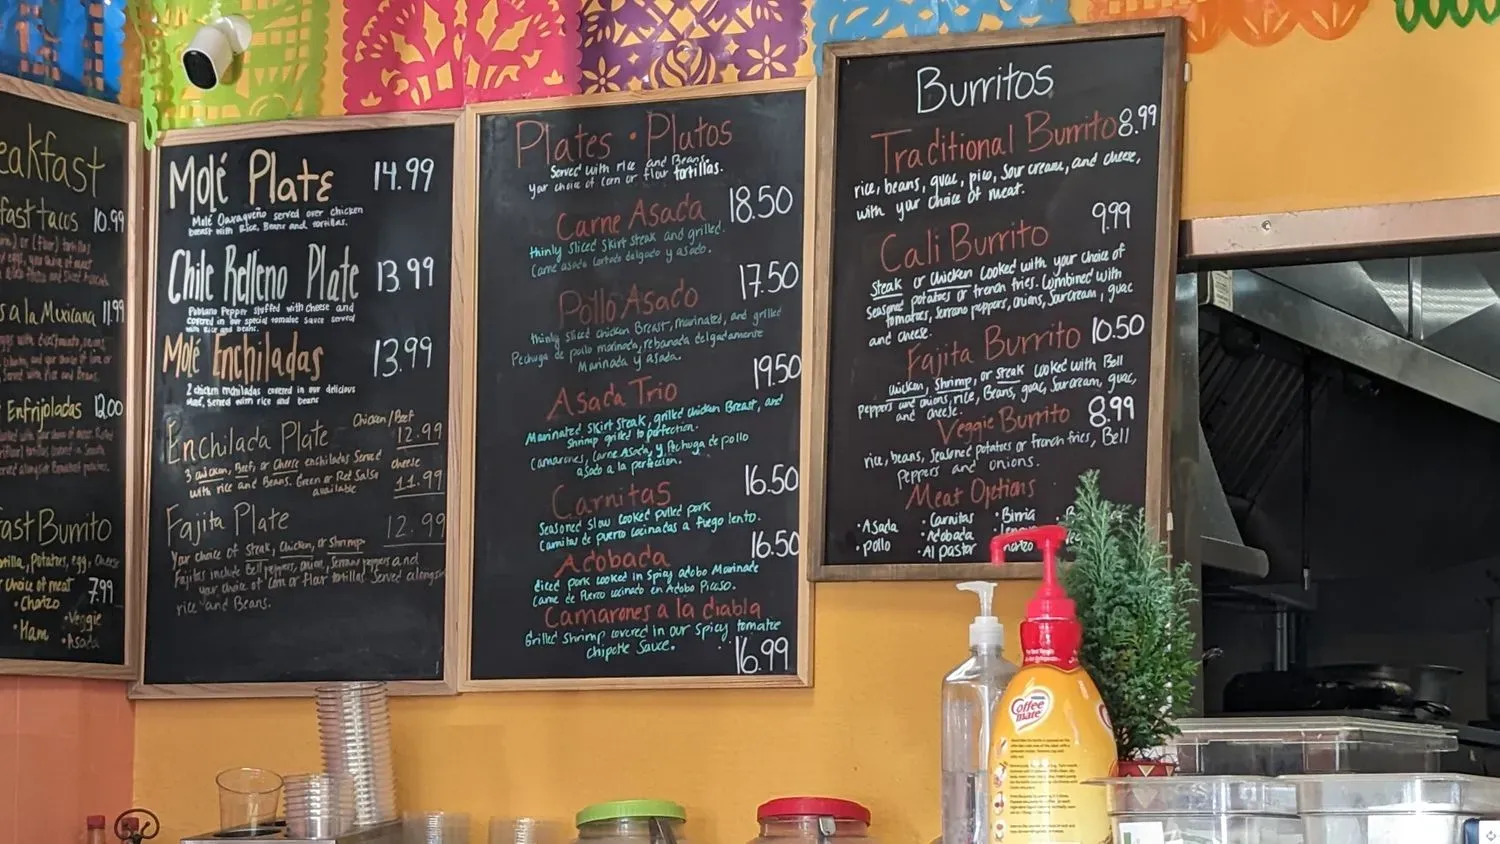 eakfast
fast tacos 10.99
s a la Mexicana 11.99
Enfrijoladas 12.00
fast Burrito
Potatoes, egg, cheese
choice of meat 7.99
• Chorizo • Veggie
• Ham • Asada
Molé Plate 14.99
Molé Oaxaqueño served over chicken
breast with Rice, Beans and tortillas.
Chile Relleno Plate 13.99
Poblano Pepper stuffed with cheese and
covered in our special tomatoe sauce served
with Rice and beans.
Molé Enchiladas 13.99
2 chicken enchiladas covered in our delicious
molé, served with rice and beans
Chicken/Beef
Enchilada Plate 12.99
3 chicken, Beef, or Cheese enchiladas Served cheese
with rice and Beans. Green or Red Salsa 11.99
available
Fajita Plate 12.99
Your choice of Steak, Chicken, or Shrimp.
Fajitas include Bell peppers, onion, Serrano peppers and
your choice of Corn or flour tortillas. Served alongside
rice and Beans.
Plates • Platos
Served with rice and Beans.
your choice of corn or flour tortillas.
Carne Asada 18.50
thinly sliced Skirt steak and grilled.
Carne asada cortada delgado y asado.
Pollo Asado 17.50
thinly sliced chicken Breast, marinated, and grilled
Pechuga de pollo marinada, rebanada delgadamente
Marinada y asada.
Asada Trio 19.50
Marinated Skirt Steak, grilled chicken Breast, and
Shrimp grilled to perfection.
Camarones, Carne Asada, y Pechuga de pollo
asado a la perfección.
Carnitas 16.50
Seasoned slow cooked pulled pork
Carnitas de puerco cocinadas a fuego lento.
Adobada 16.50
diced pork cooked in Spicy adobo Marinade
Carne de Puerco cocinado en Adobo Picoso.
Camarones a la diabla
Grilled Shrimp covered in our Spicy tomatoe
Chipotle Sauce.
16.99
Burritos
Traditional Burrito 8.99
rice, beans, guac, pico, Sour cream, and cheese,
with your choice of meat.
Cali Burrito 9.99
Steak or Chicken Cooked with your choice of
Seasoned potatoes or french fries. Combined with
tomatoes, serrano peppers, onions, Sour cream, guac
and cheese.
Fajita Burrito 10.50
Chicken, Shrimp, or Steak cooked with Bell
peppers and onions, rice, Beans, guac, Sour cream, guac,
and cheese.
Veggie Burrito 8.99
rice, beans, Seasoned Potatoes or french fries, Bell
Peppers and onions.
Meat Options
• Asada • Carnitas • Birria
• Pollo • Adobada
• Al Pastor
Coffee
mate